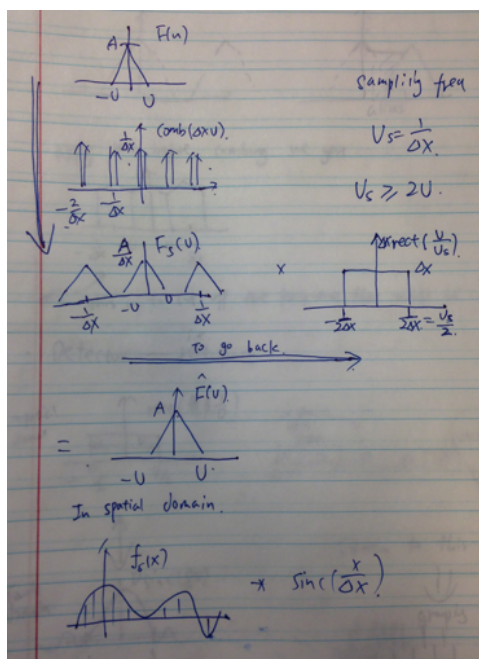 F(u)
A
-U U
samplify freu
Us = 1/Δx
Us ≥ 2U.
1/Δx comb(ΔxU).
-2/Δx -1/Δx
A/Δx Fs(U).
-1/Δx -U U 1/Δx
×
Δx rect(U/Us)
Δx
-1/2Δx 1/2Δx = Us/2.
To go back.
= A F̂(U).
-U U
In spatial domain.
fs(x) * sinc(x/Δx)